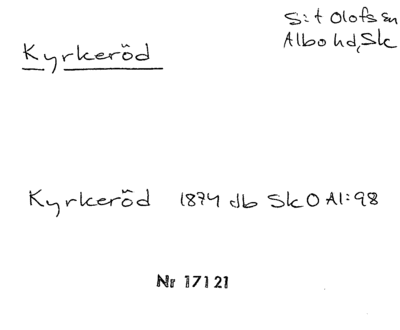 S:t Olofs sn
Albo hd, Sk
Kyrkeröd
Kyrkeröd 1874 db Sk O Al:98
Nr 17121